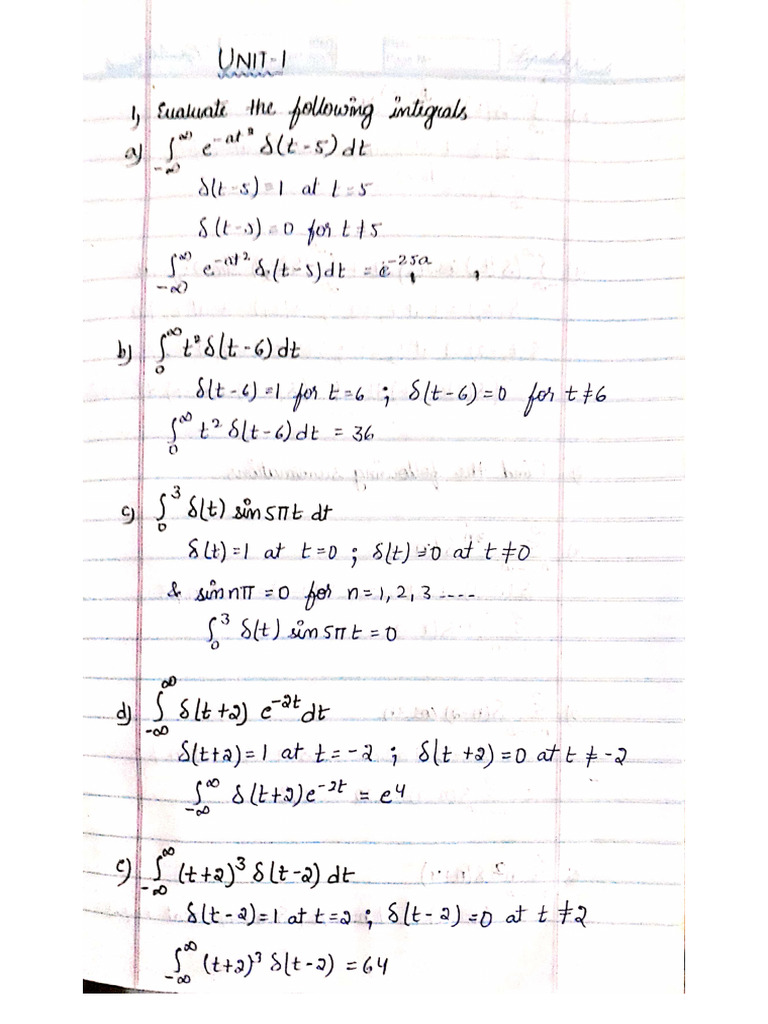 UNIT-1
1) Evaluate the following integrals
a) ∫_{-∞}^{∞} e^{-at²} δ(t-5) dt
δ(t-5)=1 at t=5
δ(t-5)=0 for t≠5
∫_{-∞}^{∞} e^{-at²} δ(t-5)dt = e^{-25a}
b) ∫_{0}^{∞} t² δ(t-6) dt
δ(t-6)=1 for t=6 ; δ(t-6)=0 for t≠6
∫_{0}^{∞} t² δ(t-6)dt = 36
c) ∫_{0}^{3} δ(t) sin5πt dt
δ(t)=1 at t=0 ; δ(t)=0 at t≠0
& sin nπ =0 for n=1,2,3 ----
∫_{0}^{3} δ(t) sin5πt =0
d) ∫_{-∞}^{∞} δ(t+2) e^{-2t} dt
δ(t+2)=1 at t=-2 ; δ(t+2)=0 at t≠-2
∫_{-∞}^{∞} δ(t+2)e^{-2t} = e^{4}
e) ∫_{-∞}^{∞} (t+2)³ δ(t-2) dt
δ(t-2)=1 at t=2 ; δ(t-2)=0 at t≠2
∫_{-∞}^{∞} (t+2)³ δ(t-2) =64